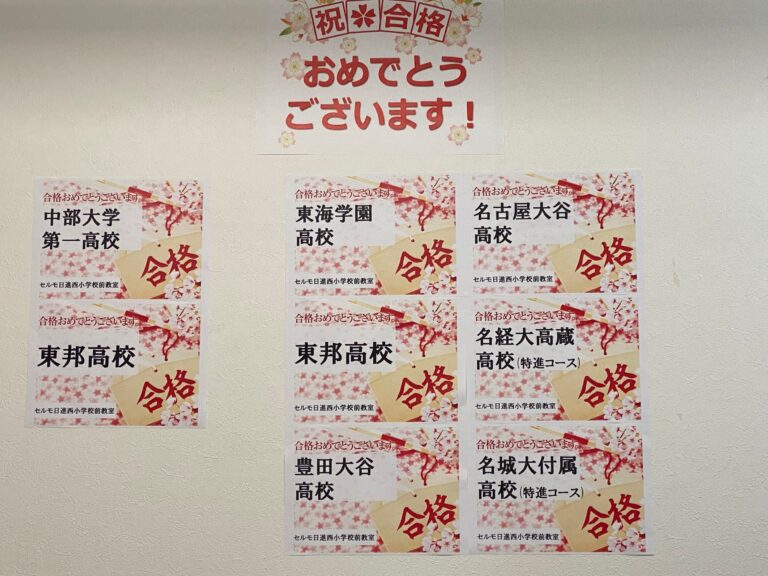 祝合格
おめでとう
ございます!
合格おめでとうございます。
中部大学
第一高校
合格
セルモ日進西小学校前教室
合格おめでとうございます。
東邦高校
合格
セルモ日進西小学校前教室
合格おめでとうございます。
東海学園
高校
合格
セルモ日進西小学校前教室
合格おめでとうございます。
名古屋大谷
高校
合格
セルモ日進西小学校前教室
合格おめでとうございます。
東邦高校
合格
セルモ日進西小学校前教室
合格おめでとうございます。
名経大高蔵
高校(特進コース)
合格
セルモ日進西小学校前教室
合格おめでとうございます。
豊田大谷
高校
合格
セルモ日進西小学校前教室
合格おめでとうございます。
名城大付属
高校(特進コース)
合格
セルモ日進西小学校前教室